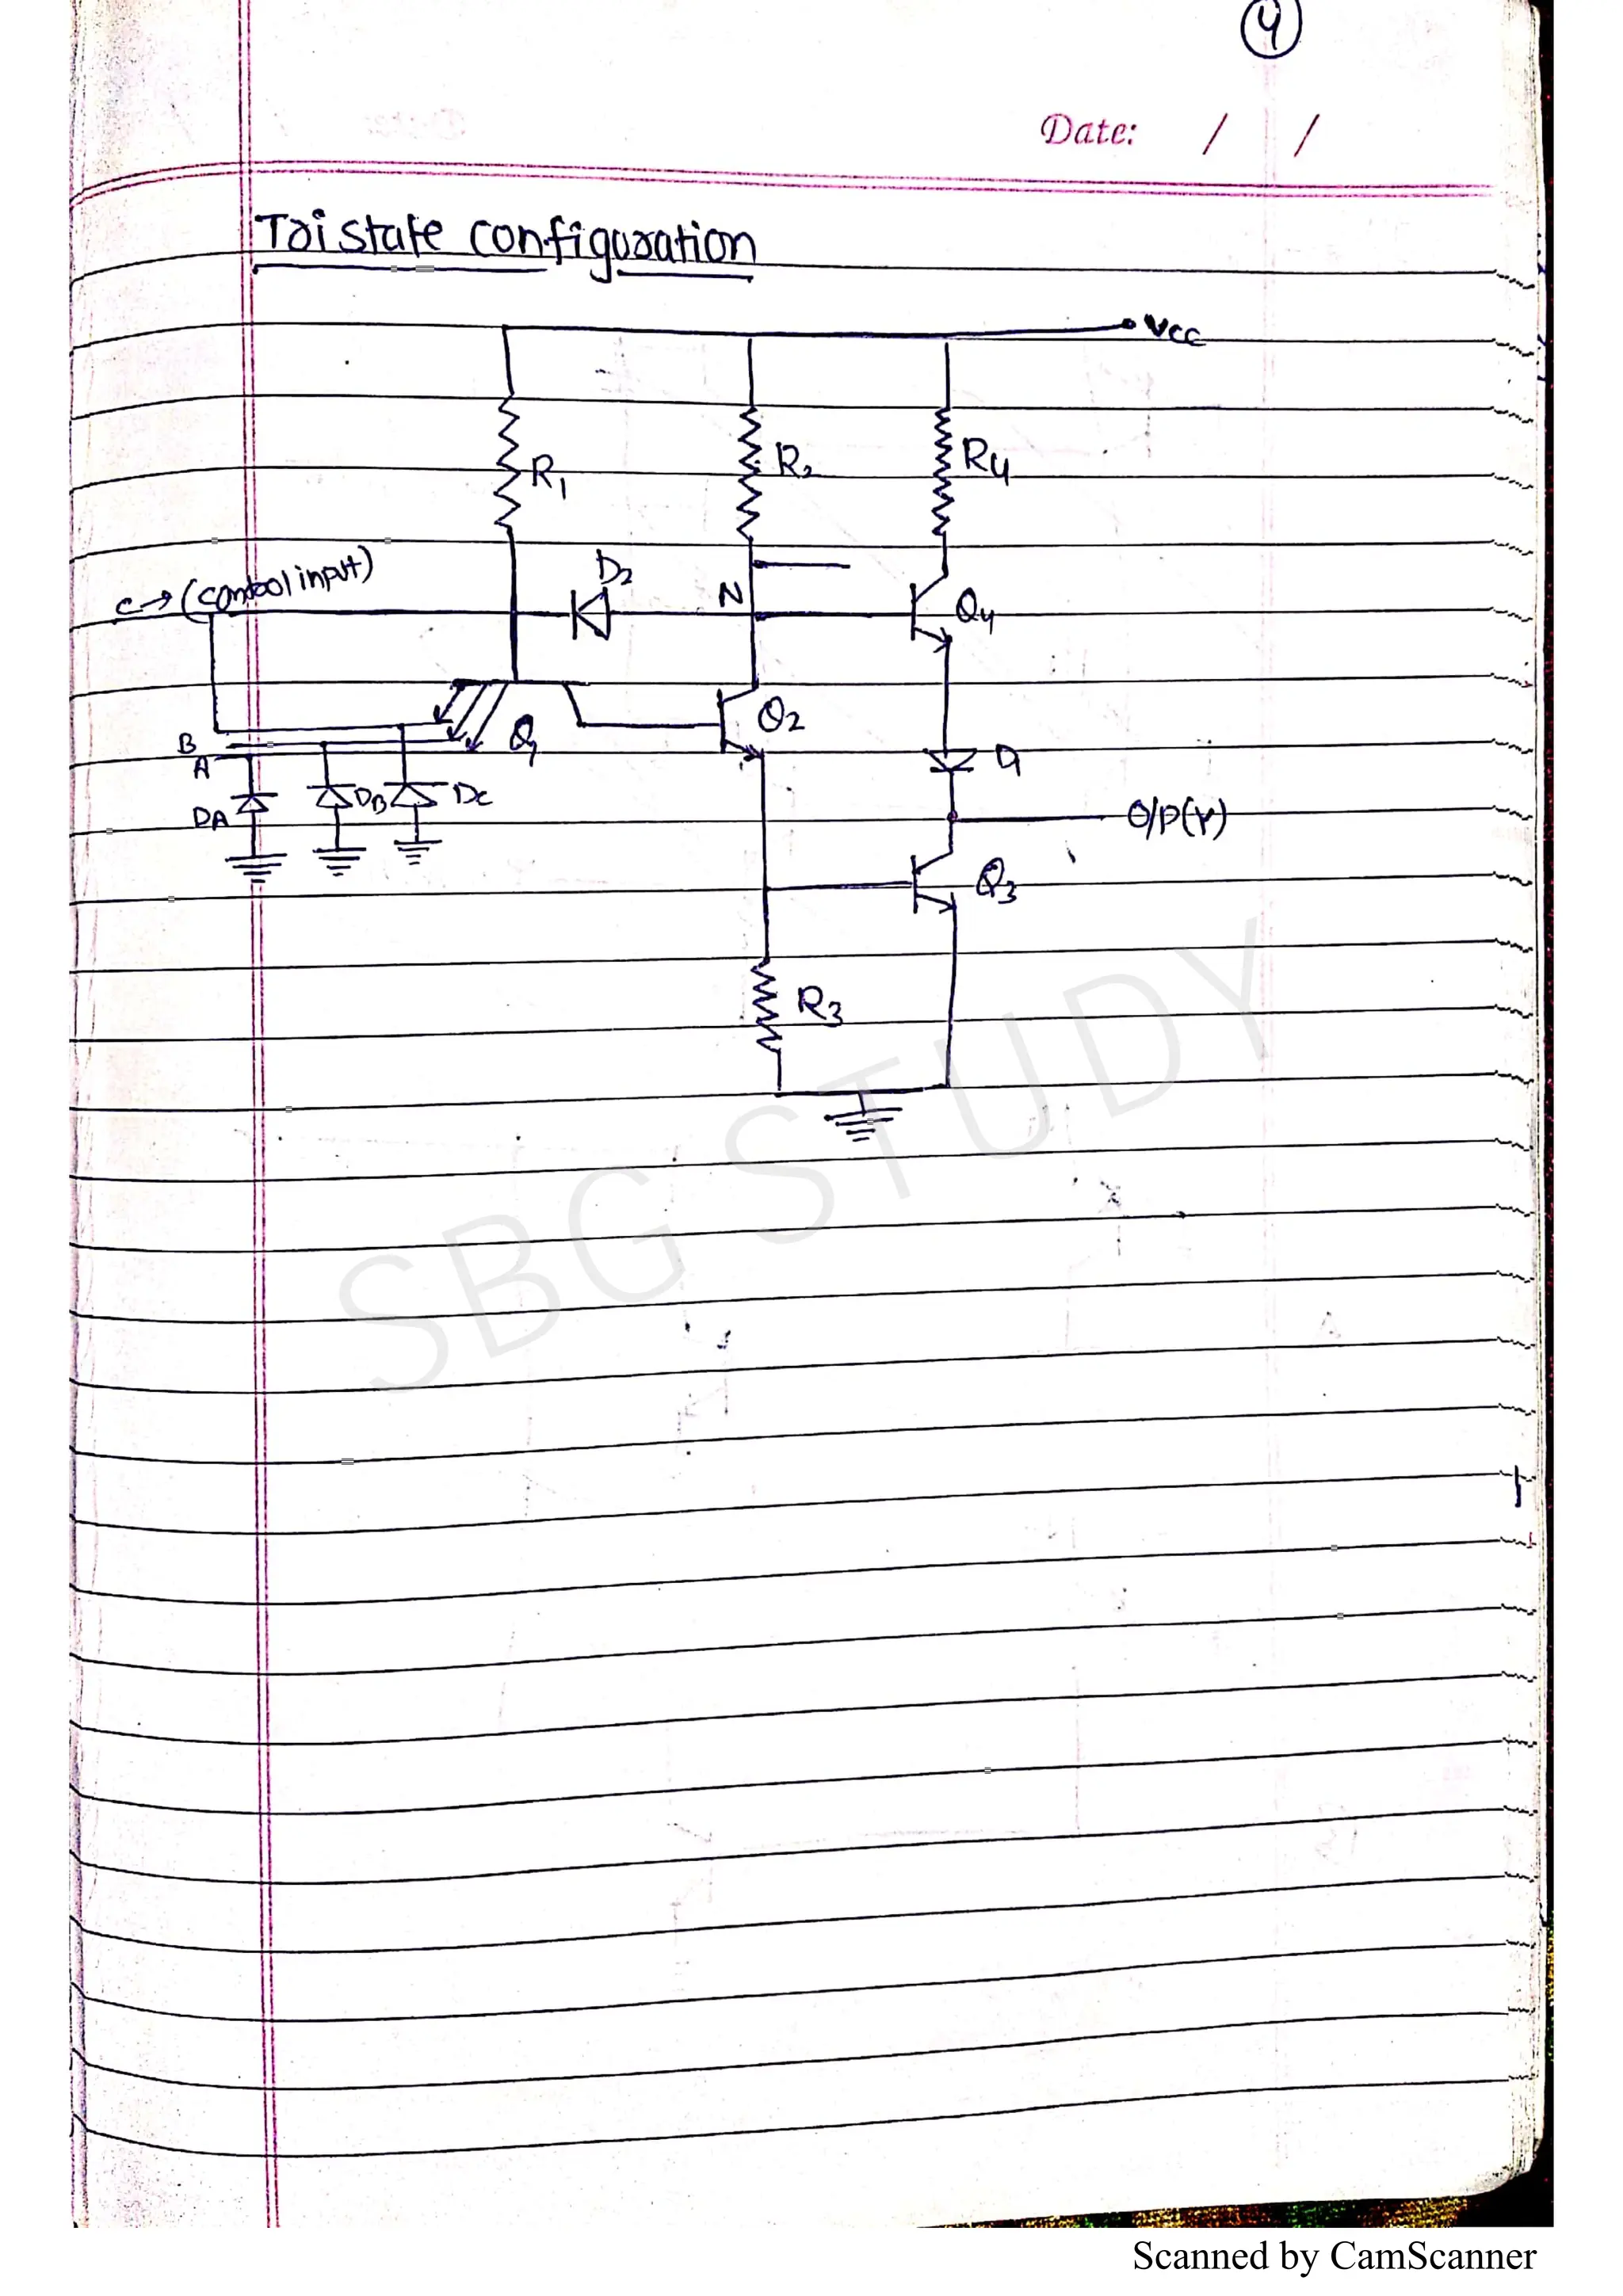 4
Date: / /
Tristate configuration
Vcc
R1 R2 R4
C → (control input) D2 N Q4
B Q1 Q2
A D1
DA DB DC O/P(Y)
Q3
R3
SBG STUDY
Scanned by CamScanner